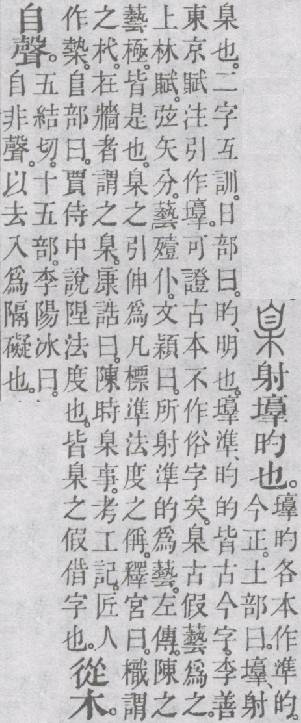 臬 射埻旳也。
埻旳各本作準的。
今正。土部曰。埻、射
臬也。二字互訓。日部曰。旳、明也。埻準、旳的皆古今字。李善
東京賦注引作埻。可證古本不作俗字矣。臬古假藝爲之。
上林賦。弦矢分。藝殪仆。文穎曰。所射準的爲藝。左傳。陳之
藝極。皆是也。臬之引伸爲凡標準法度之偁。釋宮曰。樴謂
之杙。在牆者謂之臬。康誥曰。陳時臬事。考工記。匠人
作槷。𨸏部曰。賈侍中說。陧法度也。皆臬之假借字也。
從木。
自聲。
五結切。十五部。李陽冰曰。
自非聲。以去入爲隔礙也。